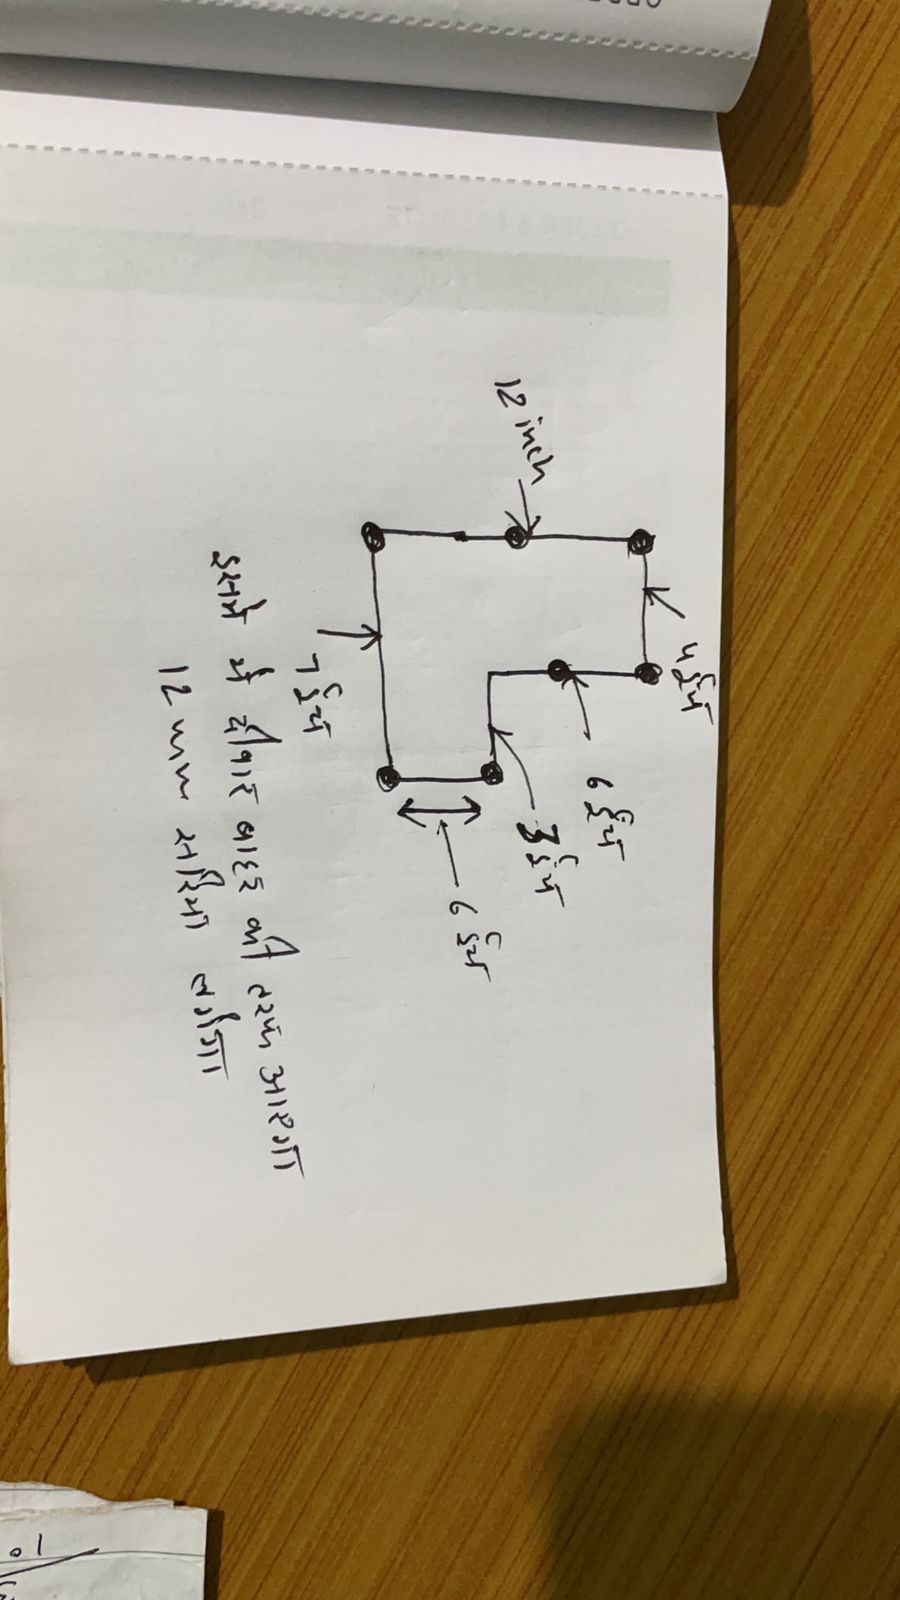 12 inch
4 इंच
6 इंच
3 इंच
6 इंच
7 इंच
इसमें से दीवार बाहर की तरफ आएगा
12 mm सरिया लगेगा